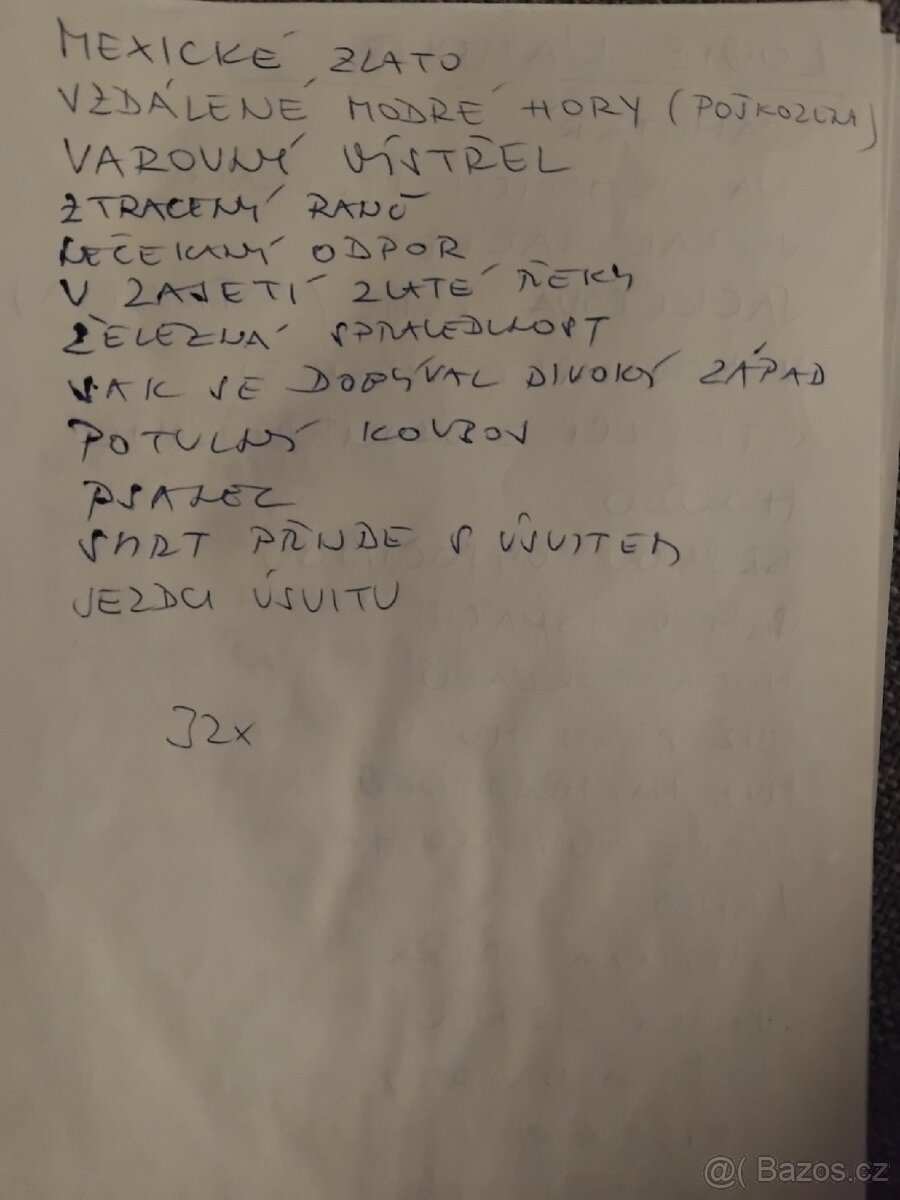 MEXICKÉ ZLATO
VZDÁLENÉ MODRÉ HORY (POŠKOZENA)
VAROVNÝ VÍSTŘEL
ZTRACENÝ RANČ
NEČEKANÝ ODPOR
V ZAJETÍ ZLATÉ ŘEKY
ŽELEZNÁ SPRAVEDLNOST
JAK SE DOBÝVAL DIVOKÝ ZÁPAD
POTULNÝ KOVBOJ
PSANEC
SMRT PŘIJDE S ÚSVITEM
JEZDCI ÚSVITU
32x
@( Bazos.cz